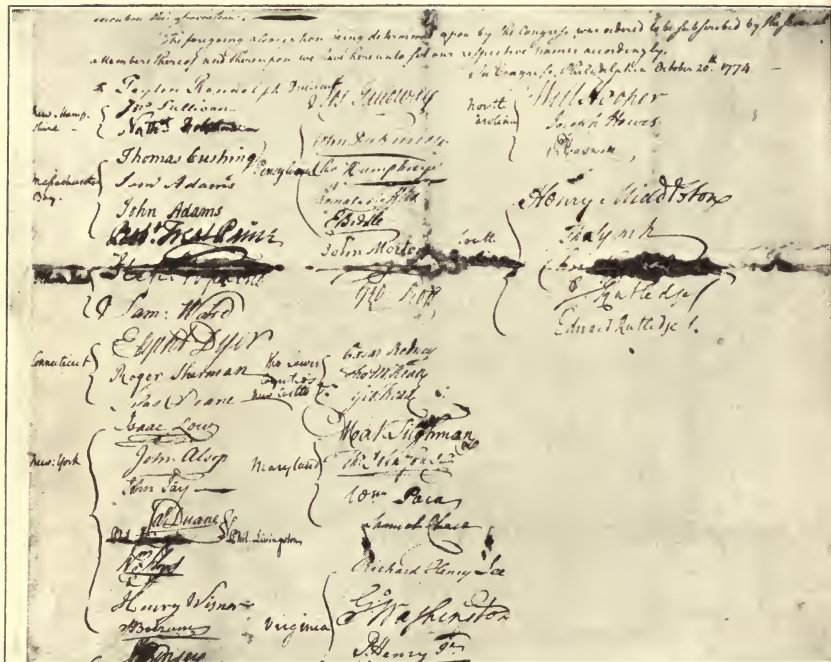 The foregoing association being determined upon by the Congress, was ordered to be subscribed by the several
Members thereof and thereupon we have hereunto set our respective names accordingly.
In Congress, Philadelphia October 20th 1774
Peyton Randolph President
New Hampshire
Jno Sullivan
Nathl
Massachusetts Bay
Thomas Cushing
Saml Adams
John Adams
Robt Treat Paine
Step Hopkins
Sam: Ward
Connecticut
Elipht Dyer
Roger Sherman
Silas Deane
New-York
Isaac Low
John Alsop
John Jay
Jas Duane
Phil. Livingston
Wm Floyd
Henry Wisner
S: Boerum
Jos Galloway
Pensylvania
John Dickinson
Cha Humphreys
Thomas Mifflin
E Biddle
John Morton
Geo Ross
the Lower Counties New Castle
Cæsar Rodney
Tho M:Kean
Geo Read
Maryland
Mat Tilghman
Ths Johnson Junr
Wm Paca
Samuel Chase
Virginia
Richard Henry Lee
Go Washington
P. Henry Jr
North Carolina
Will Hooper
Joseph Hewes
Rd Caswell
South
Henry Middleton
Tho Lynch
J Rutledge
Edward Rutledge